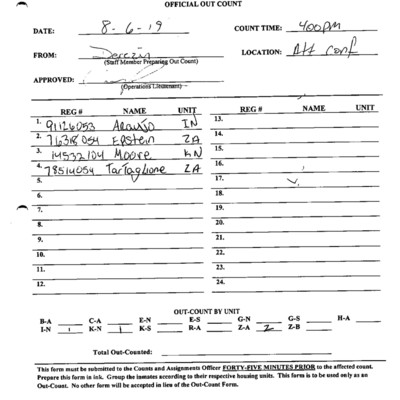 OFFICIAL OUT COUNT
DATE: 8-6-19 COUNT TIME: 400pm
FROM: LOCATION: Att conf
(Staff Member Preparing Out Count)
APPROVED:
(Operations Lieutenant)
REG # NAME UNIT REG # NAME UNIT
1. 91126053 Araujo IN 13.
2. 76318054 Epstein ZA 14.
3. 14532104 Moore KN 15.
4. 78514054 Tartaglione ZA 16.
5. 17.
6. 18.
7. 19.
8. 20.
9. 21.
10. 22.
11. 23.
12. 24.
OUT-COUNT BY UNIT
B-A C-A E-N E-S G-N G-S H-A
I-N 1 K-N 1 K-S R-A Z-A 2 Z-B
Total Out-Counted:
This form must be submitted to the Counts and Assignments Officer FORTY-FIVE MINUTES PRIOR to the affected count.
Prepare this form in ink. Group the inmates according to their respective housing units. This form is to be used only as an
Out-Count. No other form will be accepted in lieu of the Out-Count Form.